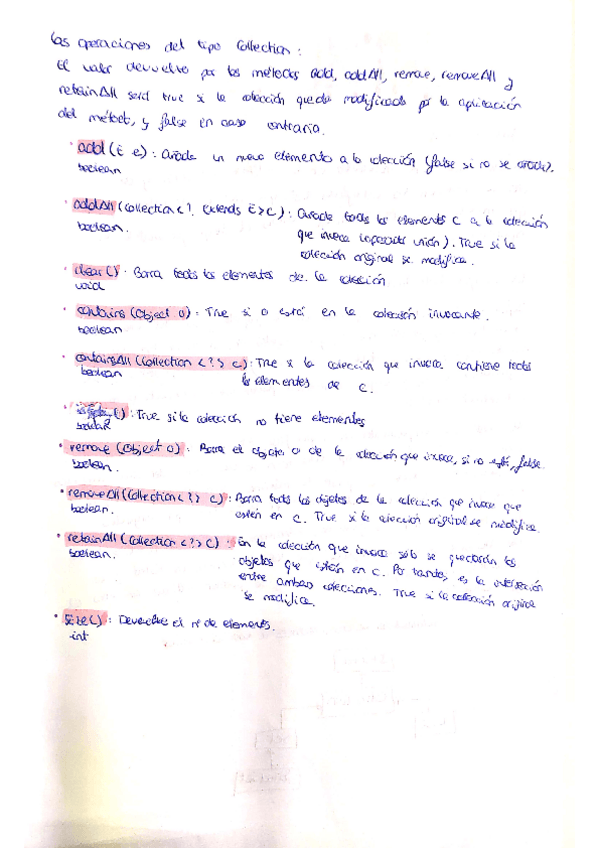 Las operaciones del tipo Collection:
El valor devuelto por los métodos add, addAll, remove, removeAll y
retainAll será true si la colección queda modificada por la aplicación
del método, y false en caso contrario.
· add (E e): Añade un nuevo elemento a la colección (false si no se añade).
boolean
· addAll (Collection <? extends E> c): Añade todos los elements c a la colección
boolean. que invoca (operación unión). True si la
colección original se modifica.
· clear (): Borra todos los elementos de la colección
void
· contains (Object o): True si o está en la colección invocante.
boolean
· containsAll (Collection <?> c): True si la colección que invoca contiene todos
boolean los elementos de c.
· (): True si la colección no tiene elementos
· remove (Object o): Borra el objeto o de la colección que invoca, si no está, false.
boolean.
· removeAll (Collection <?> c): Borra todos los objetos de la colección que invoca que
boolean. estén en c. True si la colección original se modifica.
· retainAll (Collection <?> c): En la colección que invoca sólo se quedarán los
boolean. objetos que están en c. Por tanto, es la intersección
entre ambas colecciones. True si la colección original
se modifica.
· size(): Devuelve el nº de elements.
int